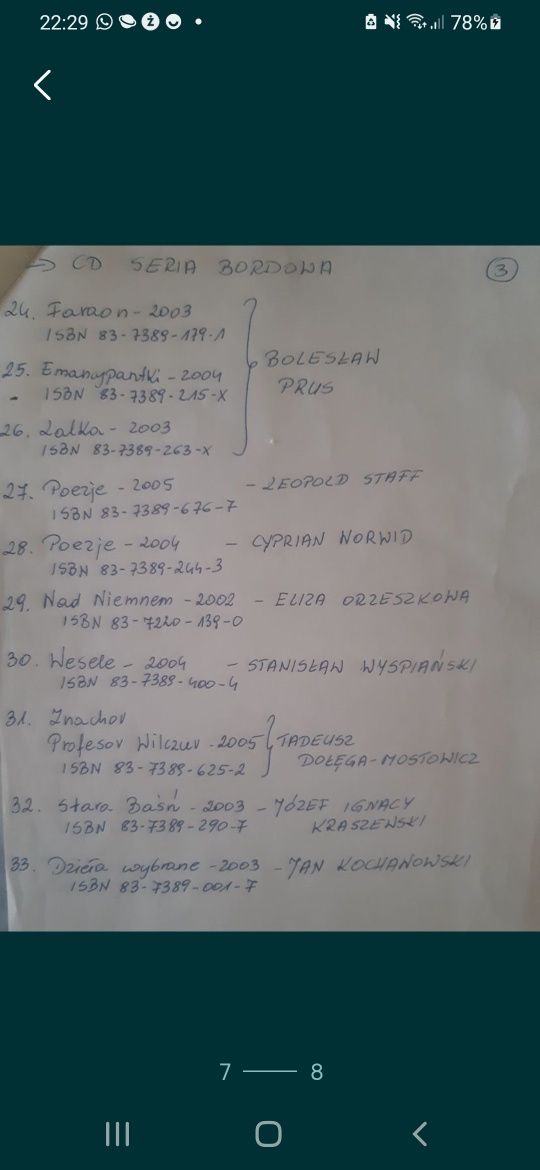 22:29 78%
→ CD SERIA BORDOWA 3
24. Faraon - 2003
ISBN 83-7389-179-1
25. Emancypantki - 2004
- ISBN 83-7389-215-X
26. Lalka - 2003
ISBN 83-7389-263-X
BOLESŁAW
PRUS
27. Poezje - 2005 - LEOPOLD STAFF
ISBN 83-7389-676-7
28. Poezje - 2004 - CYPRIAN NORWID
ISBN 83-7389-244-3
29. Nad Niemnem - 2002 - ELIZA ORZESZKOWA
ISBN 83-7220-139-0
30. Wesele - 2004 - STANISŁAW WYSPIAŃSKI
ISBN 83-7389-400-4
31. Znachor
Profesor Wilczur - 2005 TADEUSZ
DOŁĘGA-MOSTOWICZ
ISBN 83-7389-625-2
32. Stara Baśń - 2003 - JÓZEF IGNACY
KRASZEWSKI
ISBN 83-7389-290-7
33. Dzieła wybrane - 2003 - JAN KOCHANOWSKI
ISBN 83-7389-001-7
7 — 8